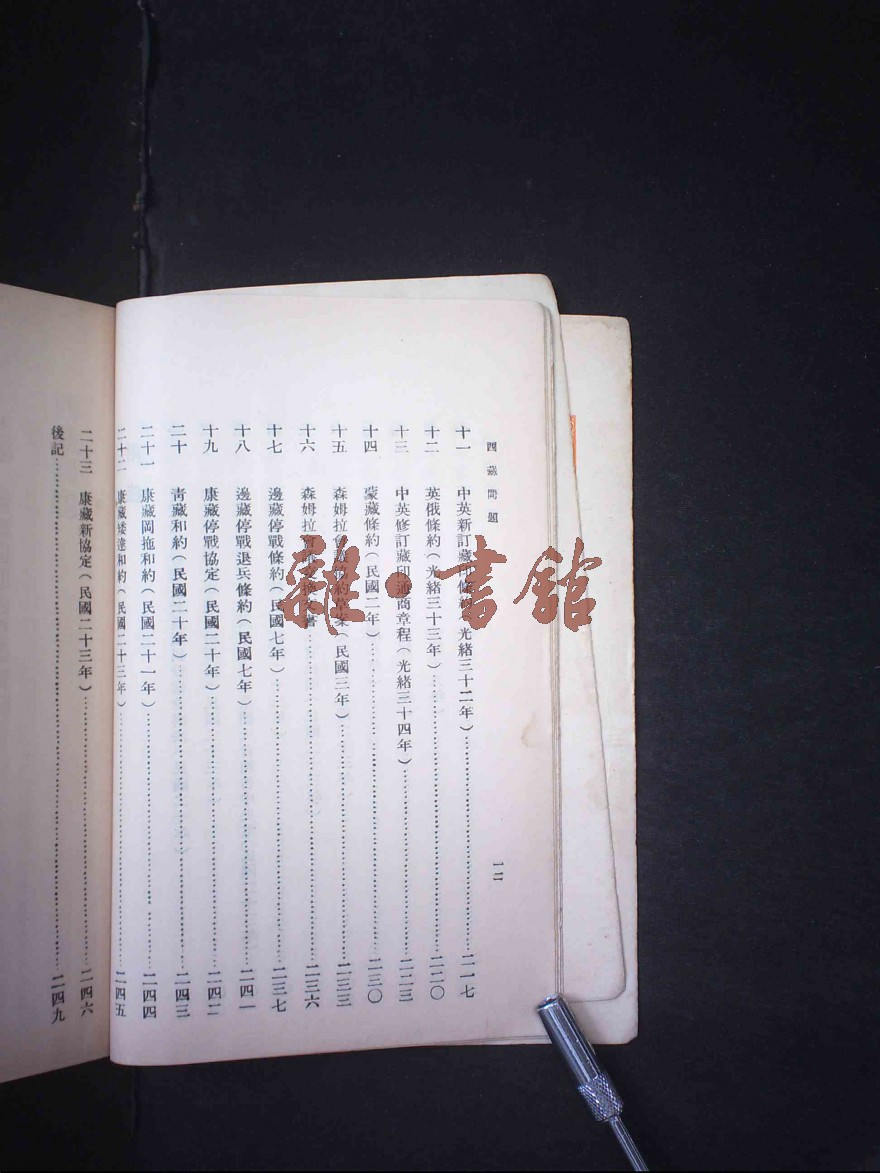 西藏問題
一二
十一 中英新訂藏印條約(光緒三十二年)……二一七
十二 英俄條約(光緒三十三年)……二二〇
十三 中英修訂藏印通商章程(光緒三十四年)……二二三
十四 蒙藏條約(民國二年)……二三〇
十五 森姆拉會議條約草案(民國三年)……二三三
十六 森姆拉會議交換文書……二三六
十七 邊藏停戰條約(民國七年)……二三七
十八 邊藏停戰退兵條約(民國七年)……二四一
十九 康藏停戰協定(民國二十年)……二四二
二十 青藏和約(民國二十年)……二四三
二十一 康藏岡拖和約(民國二十一年)……二四四
二十二 康藏矮達和約(民國二十三年)……二四五
二十三 康藏新協定(民國二十三年)……二四六
後記……二四九
雜·書館